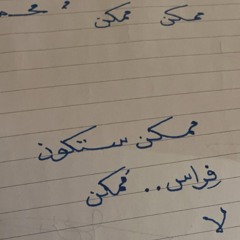 ممكن ممكن
ممكن ستكون
فِراس.. مُمكن
لا